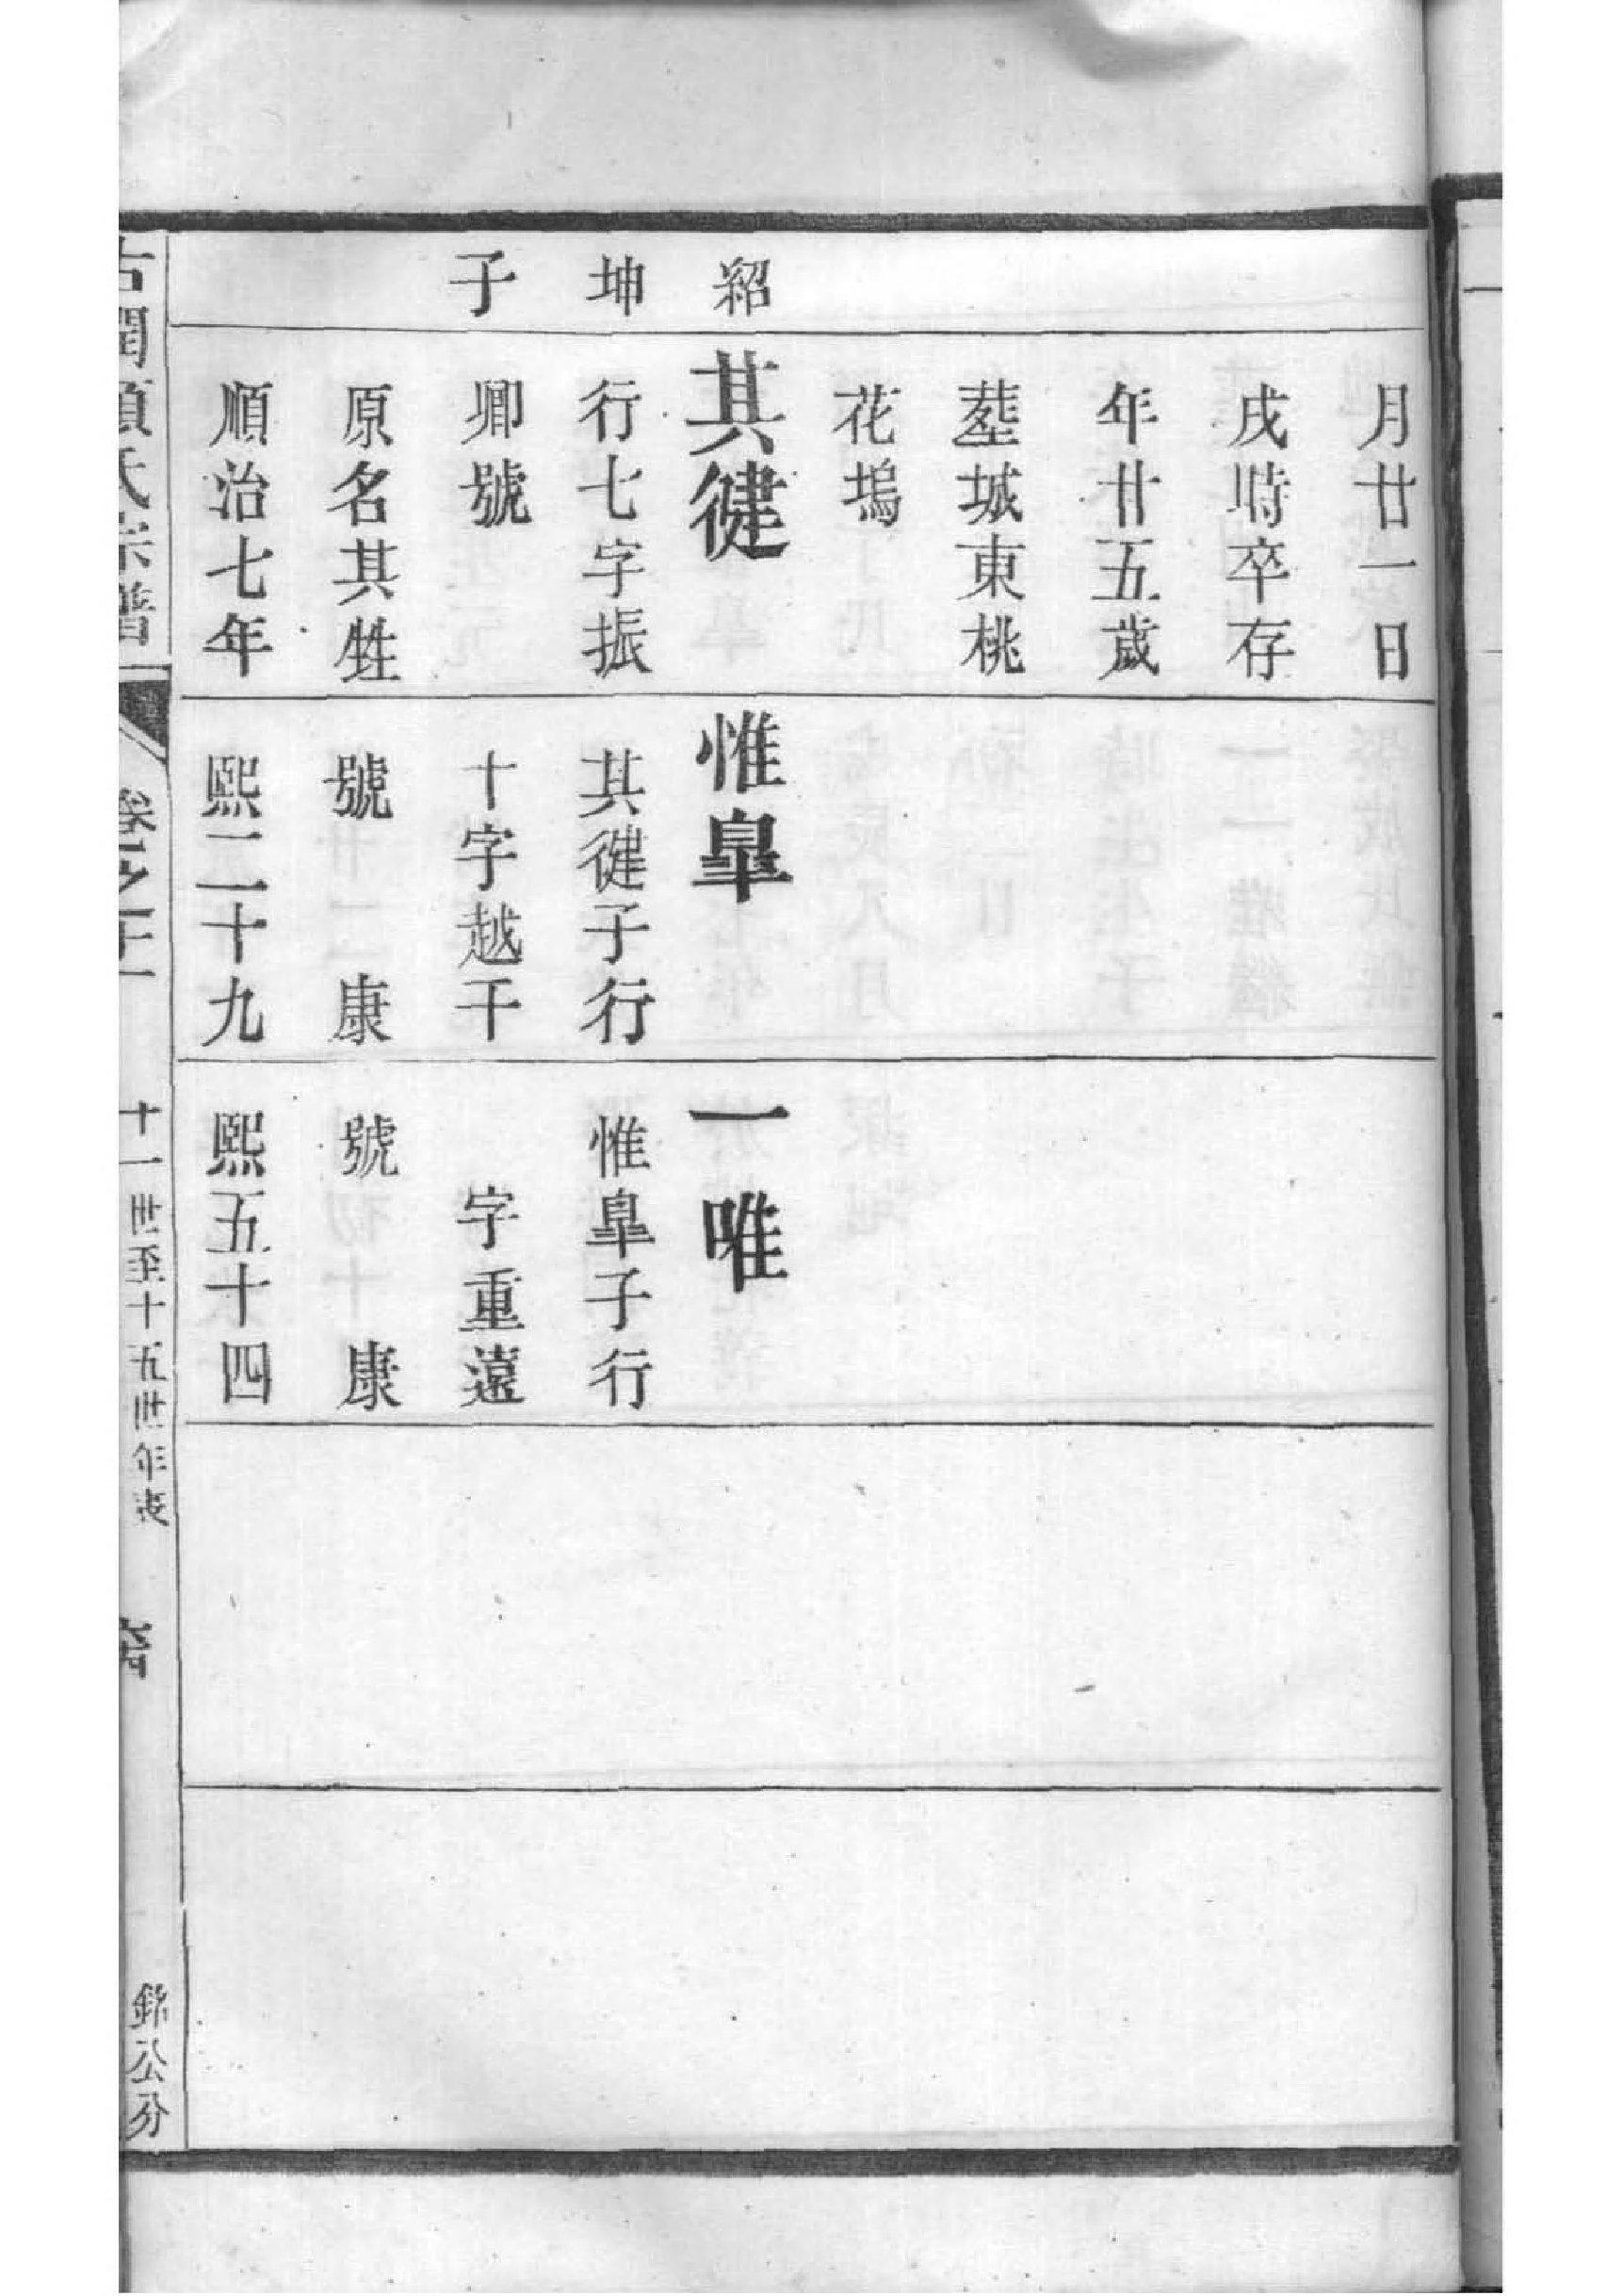 紹
坤
子
月廿一日
戌時卒存
年廿五歲
葬城東桃
花塢
其徤
行七字振
卿號
原名其甡
順治七年
惟臯
其徤子行
十字越千
號　康
熙二十九
一唯
惟臯子行
字重遠
號　康
熙五十四
氏宗譜
卷之十一
十一世至十五世年表
公分